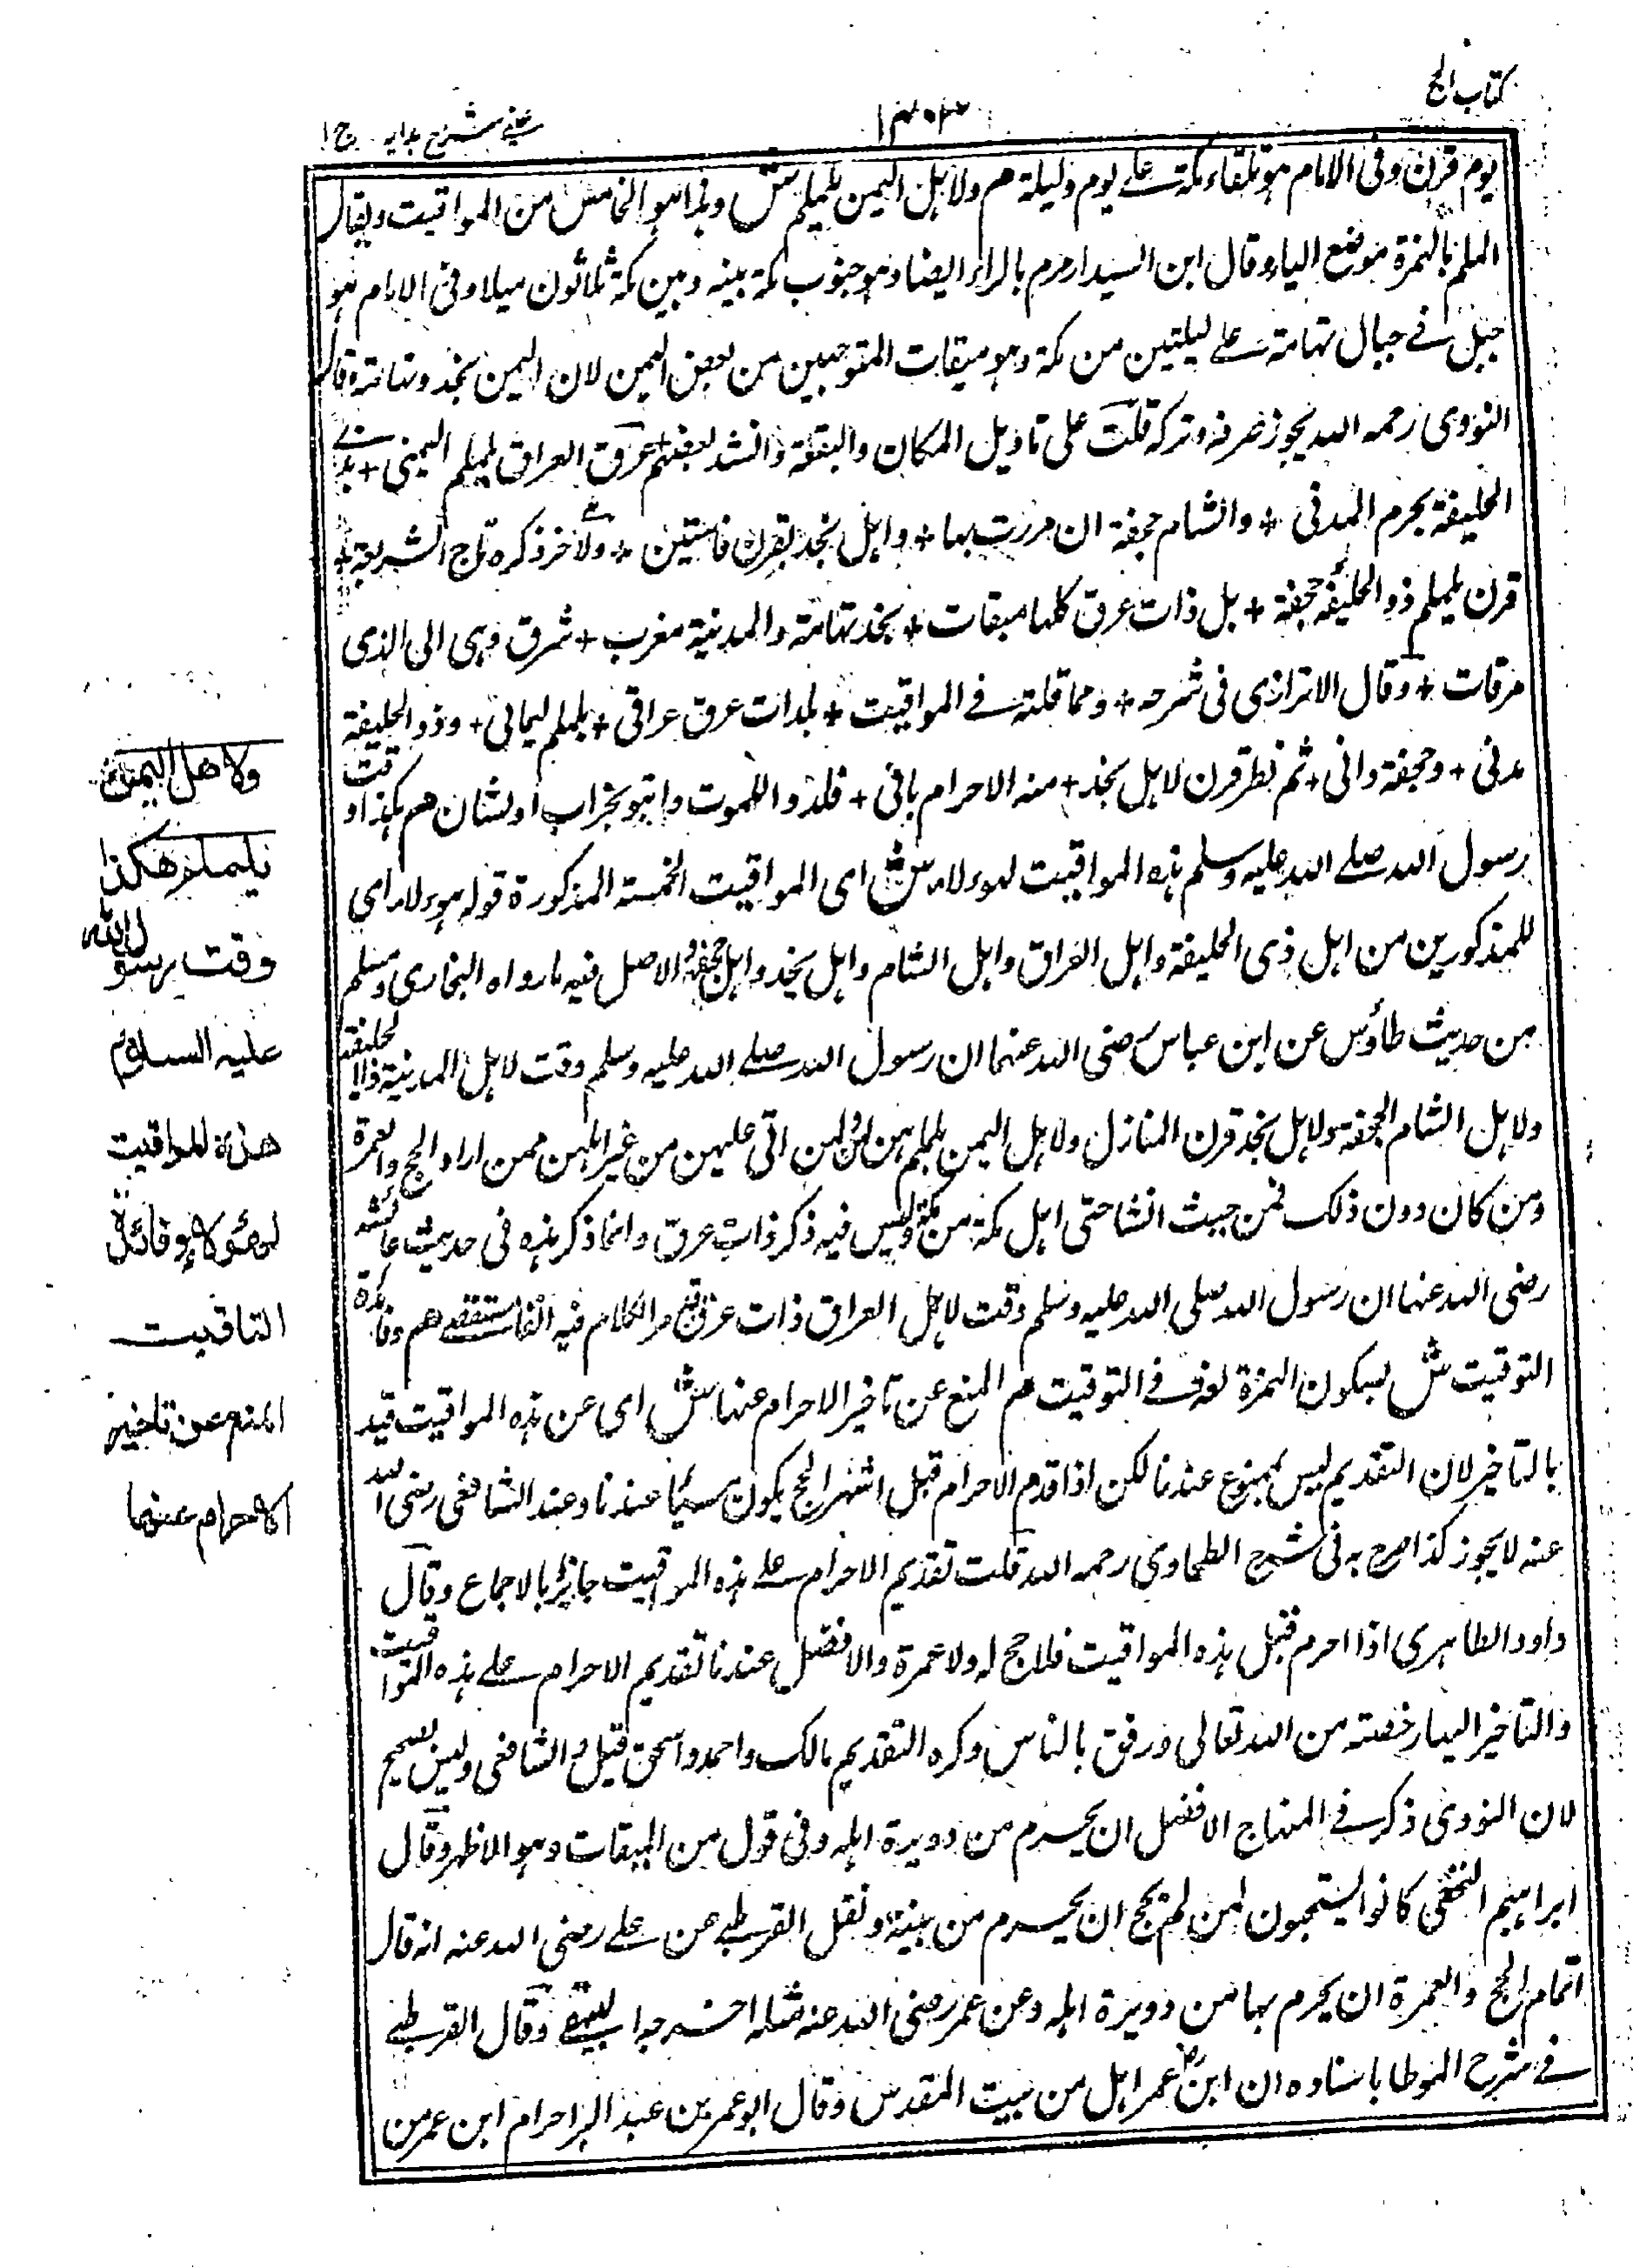 كتاب الحج
١٣٠٣
عيني شرح هدايه ج ١
يوم قرن وفى الامام هو تلقاء مكة على يوم وليلة م ولاهل اليمن يلملم ش وهذا هو الخامس من المواقيت ويقال
الملم بالهمزة موضع الياء وقال ابن السيد ارمرم بالراء ايضا وهو جنوب مكة بينه وبين مكة ثلاثون ميلا وفى الامام هو
جبل فى جبال تهامة على ليلتين من مكة وهو ميقات المتوجهين من بعض اليمن لان اليمن نجد وتهامة قال
النووى رحمه الله يجوز صرفه وتركه قلت على تاويل المكان والبقعة وانشد بعضهم عرق العراق يلملم اليمنى + بذى
الحليفة يحرم المدنى + والشام جحفة ان مررت بها + واهل نجد بقرن فاستبن + ولآخر ذكره تاج الشريعة +
قرن يلملم ذو الحليفة جحفة + بل ذات عرق كلها ميقات + نجد تهامة والمدينة مغرب + شرق وهى الى الذى
مرقات + وقال الاترازى فى شرحه + ومما قلته فى المواقيت + بذات عرق عراقى + يلملم يمانى + وذو الحليفة
مدنى + وجحفة وانى + ثم نظر قرن لاهل نجد + منه الاحرام باقى + م هكذا وقت
رسول الله صلى الله عليه وسلم هذه المواقيت لهوءلاء ش اى المواقيت الخمسة المذكورة قوله هوءلاء اى
للمذكورين من اهل ذى الحليفة واهل العراق واهل الشام واهل نجد واهل جحفة والاصل فيه مارواه البخارى ومسلم
من حديث طاؤس عن ابن عباس رضى الله عنهما ان رسول الله صلى الله عليه وسلم وقت لاهل المدينة ذا الحليفة
ولاهل الشام الجحفة ولاهل نجد قرن المنازل ولاهل اليمن يلملم هن لهن ولمن اتى عليهن من غير اهلهن ممن اراد الحج والعمرة
ومن كان دون ذلك فمن حيث انشا حتى اهل مكة من مكة وليس فيه ذكر ذات عرق وانما ذكر هذه فى حديث عائشة
رضى الله عنها ان رسول الله صلى الله عليه وسلم وقت لاهل العراق ذات عرق وقد مر الكلام فيه آنفا مستقصى م وفائدة
التوقيت ش بسكون الهمزة لغة فى التوقيت م المنع عن تاخير الاحرام عنها ش اى عن هذه المواقيت قيد
بالتاخير لان التقديم ليس بممنوع عندنا لكن اذا قدم الاحرام قبل اشهر الحج يكون مسيئا عندنا وعند الشافعى رضى الله
عنه لا يجوز كذا صرح به فى شرح الطحاوى رحمه الله قلت تقديم الاحرام على هذه المواقيت جائز بالاجماع وقال
داود الظاهرى اذا احرم قبل هذه المواقيت فلا حج له ولا عمرة والافضل عندنا تقديم الاحرام على هذه المواقيت
والتاخير اليها رخصة من الله تعالى ورفق بالناس وكره التقديم مالك واحمد واسحق قيل والشافعى وليس بصحيح
لان النووى ذكر فى المنهاج الافضل ان يحرم من دويرة اهله وفى قول من الميقات وهو الاظهر وقال
ابراهيم النخعى كانوا يستحبون لمن لم يحج ان يحرم من بيته ونقل القرطبى عن على رضى الله عنه انه قال
اتمام الحج والعمرة ان يحرم بهما من دويرة اهله وعن عمر رضى الله عنه مثله اخرجهما البيهقى وقال القرطبى
فى شرح الموطا باسناده ان ابن عمر اهل من بيت المقدس وقال ابوعمر بن عبد البر احرام ابن عمر من
ولاهل اليمن
يلملم هكذا
وقت رسول الله
عليه السلام
هذه المواقيت
لهؤلاء وفائدة
التاقيت
المنع عن تاخير
الاحرام عنها